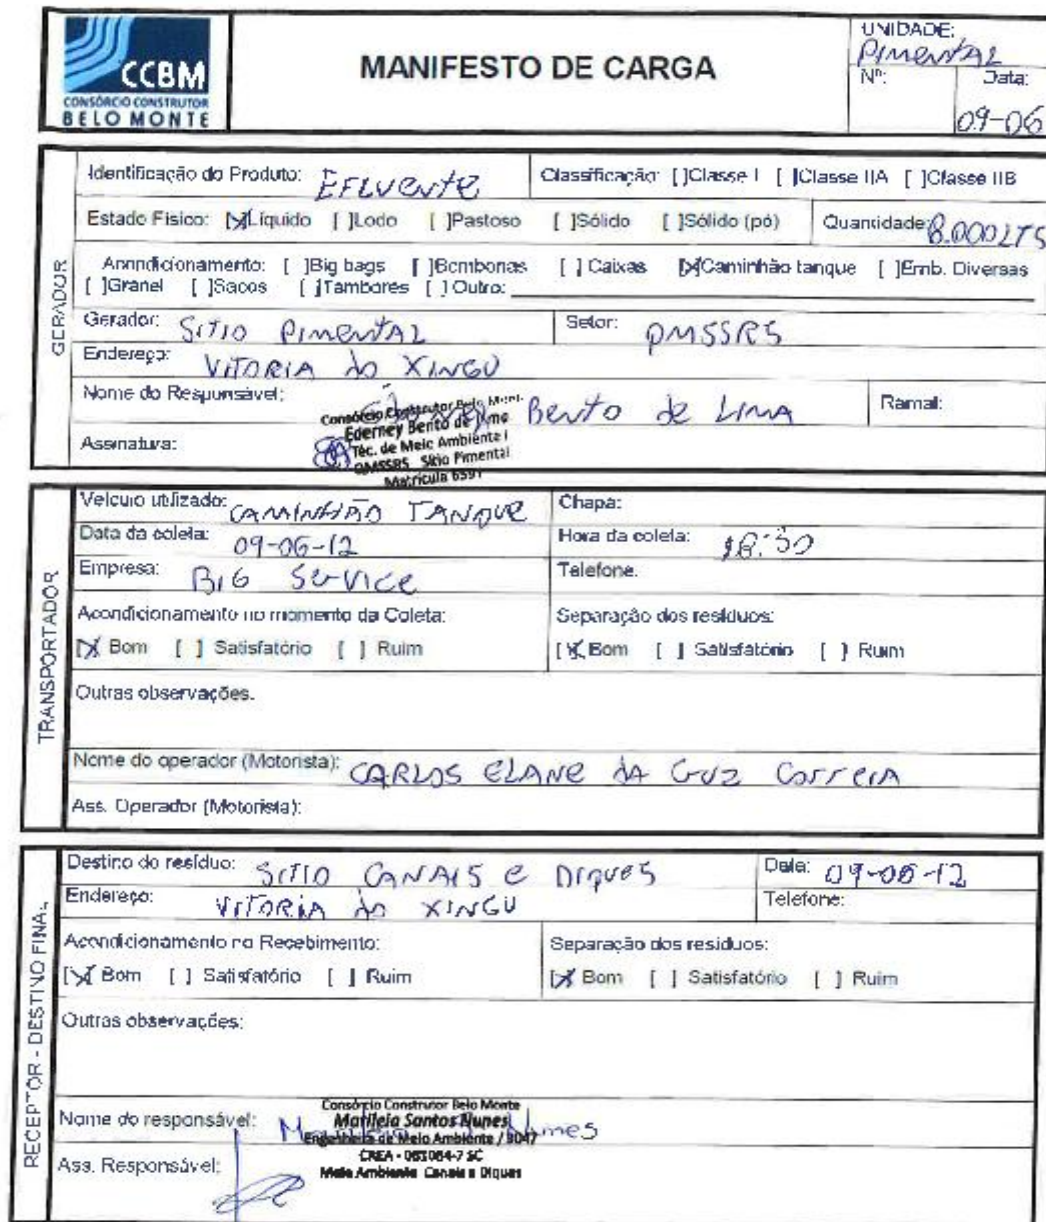 CCBM
CONSÓRCIO CONSTRUTOR
BELO MONTE
MANIFESTO DE CARGA
UNIDADE:
Pimental
Nº: Data:
09-06
GERADOR
Identificação do Produto: EFLUENTE Classificação: [ ]Classe I [ ]Classe IIA [ ]Classe IIB
Estado Físico: [X]Líquido [ ]Lodo [ ]Pastoso [ ]Sólido [ ]Sólido (pó) Quantidade: 8.000 LTS
Acondicionamento: [ ]Big bags [ ]Bombonas [ ] Caixas [X]Caminhão tanque [ ]Emb. Diversas
[ ]Granel [ ]Sacos [ ]Tambores [ ] Outro:
Gerador: SITIO PIMENTAL Setor: QMSSRS
Endereço: VITORIA DO XINGU
Nome do Responsável: Bento de Lima Ramal:
Assinatura:
Consórcio Construtor Belo Monte
Ederney Bento de Lima
Téc. de Meio Ambiente I
QMSSRS Sítio Pimental
Matrícula 6591
TRANSPORTADOR
Veículo utilizado: CAMINHÃO TANQUE Chapa:
Data da coleta: 09-06-12 Hora da coleta: 18:30
Empresa: BIG Service Telefone:
Acondicionamento no momento da Coleta: Separação dos resíduos:
[X] Bom [ ] Satisfatório [ ] Ruim [X] Bom [ ] Satisfatório [ ] Ruim
Outras observações:
Nome do operador (Motorista): CARLOS ELANE DA Cruz Correia
Ass. Operador (Motorista):
RECEPTOR - DESTINO FINAL
Destino do resíduo: SITIO CANAIS e DIQUES Data: 09-06-12
Endereço: VITORIA DO XINGU Telefone:
Acondicionamento no Recebimento: Separação dos resíduos:
[X] Bom [ ] Satisfatório [ ] Ruim [X] Bom [ ] Satisfatório [ ] Ruim
Outras observações:
Nome do responsável: Nunes
Consórcio Construtor Belo Monte
Marileia Santos Nunes
Engenheira de Meio Ambiente / 9047
CREA - 081084-7 SC
Meio Ambiente Canais e Diques
Ass. Responsável: